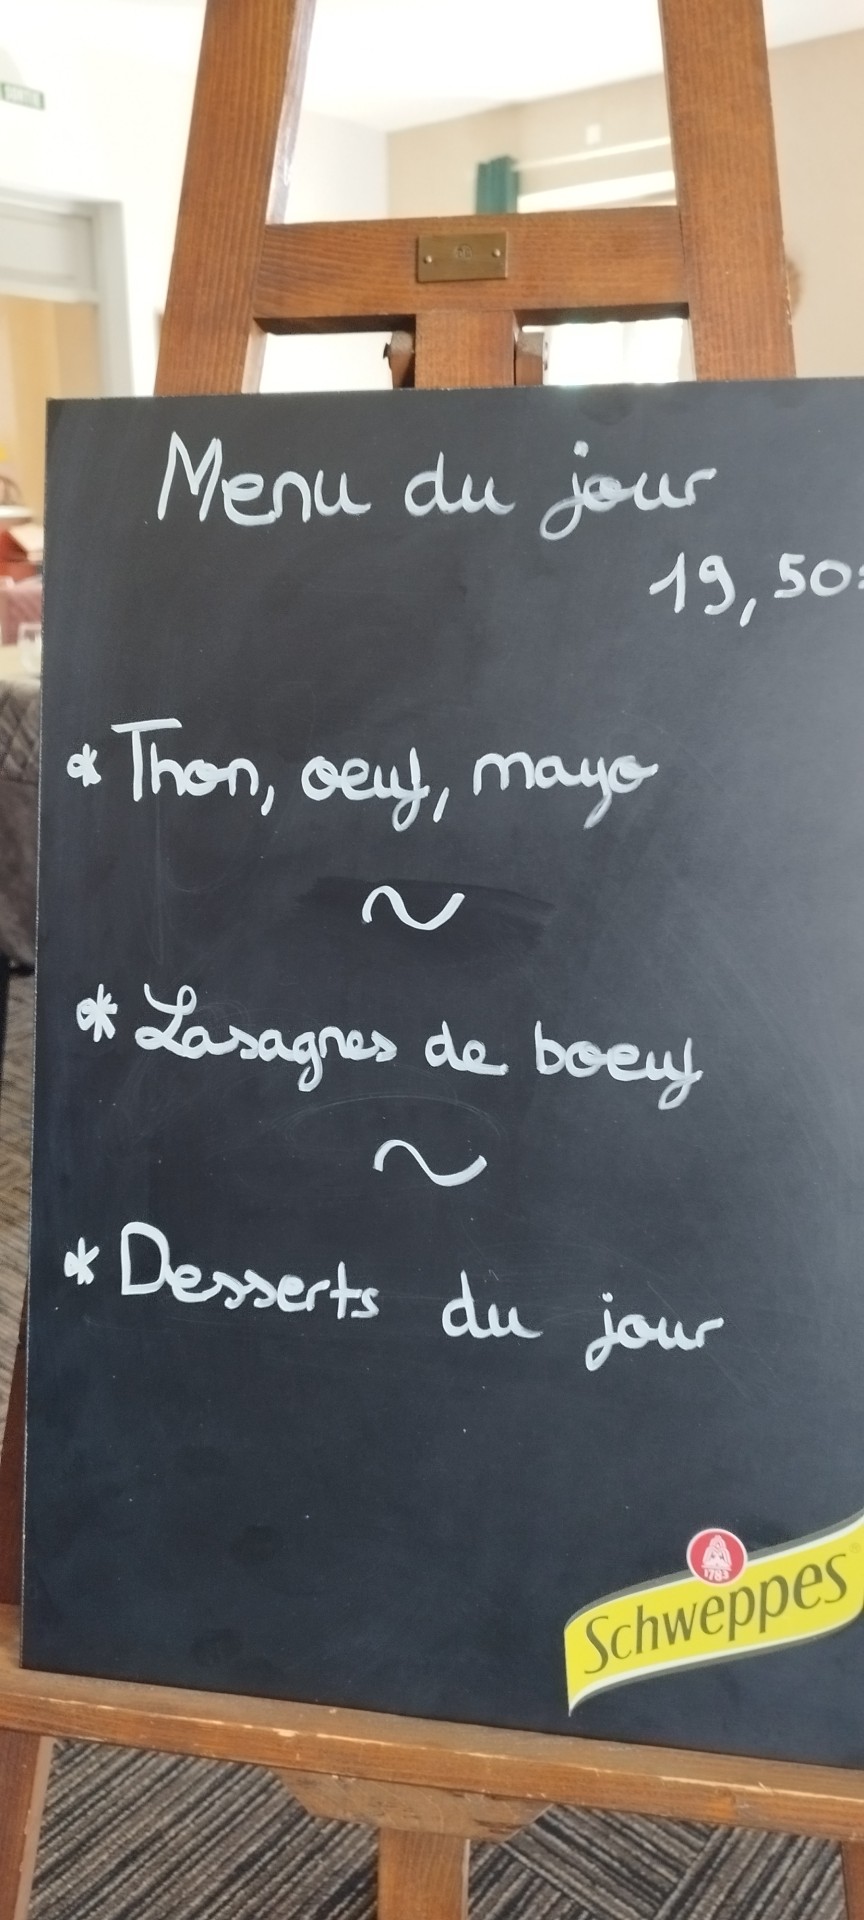 Menu du jour
19,50
* Thon, oeuf, mayo
~
* Lasagnes de boeuf
~
* Desserts du jour
1783
Schweppes